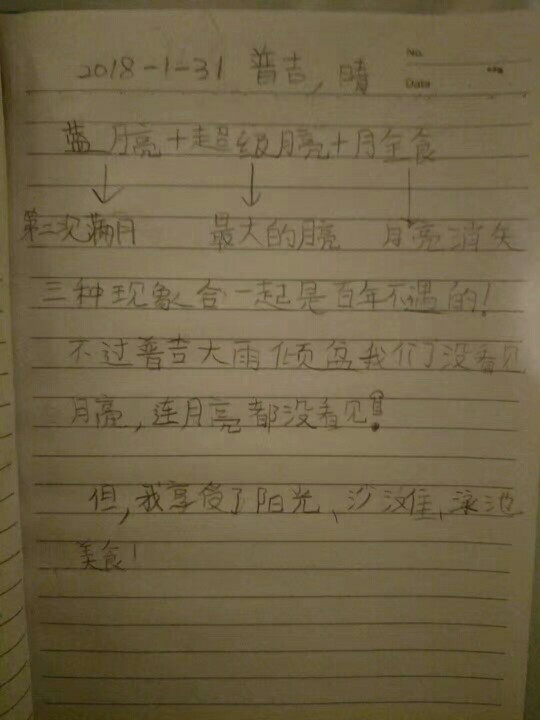 No.
Date
2018-1-31 普吉，晴
蓝月亮+超级月亮+月全食
第二次满月 最大的月亮 月亮消失
三种现象合一起是百年不遇的！
不过普吉大雨倾盆我们了没看见
月亮，连月亮都没看见！
但，我享受了阳光、沙滩、泳池
美食！